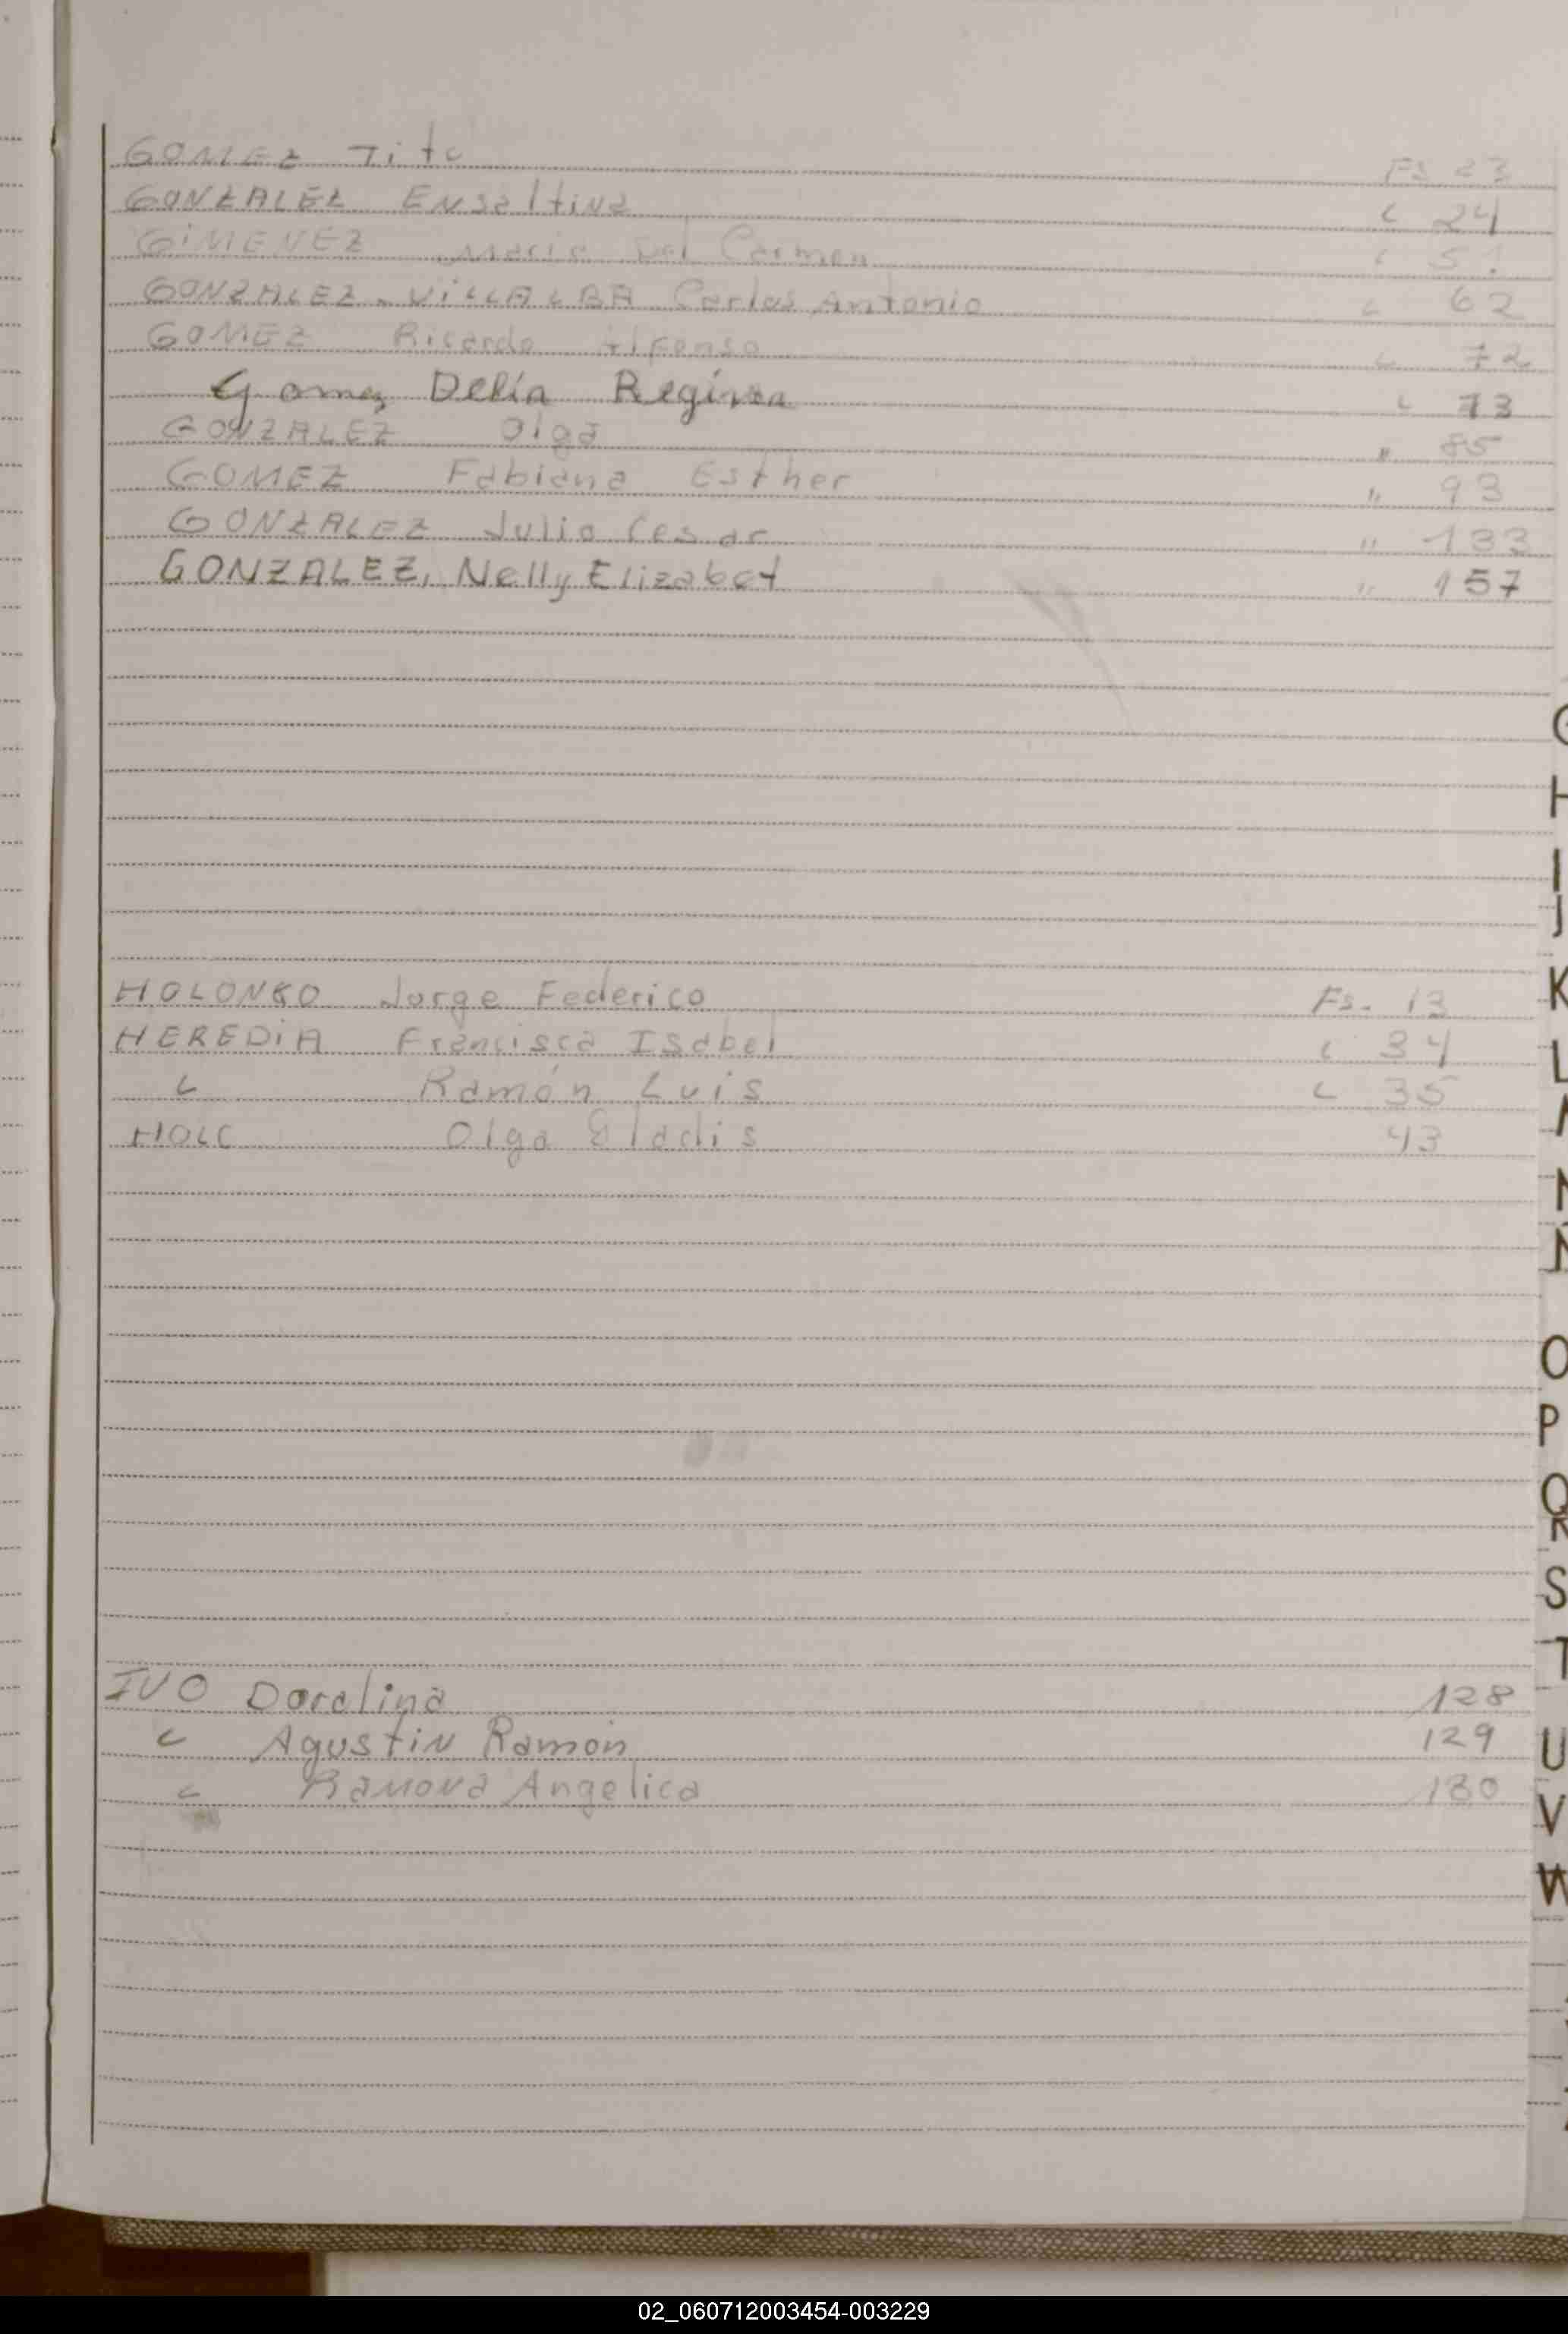 GOMEZ Tito Fs 23
GONZALEZ Ensaltina " 24
GiMENEZ Maria Del Carmen " 51
GONZALEZ - ViLLALBA Carlos Antonio " 62
GOMEZ Ricardo Alfonso " 72
Gomez Delia Regina " 73
GONZALEZ Olga " 85
GOMEZ Fabiana Esther " 93
GONZALEZ Julio Cesar " 133
GONZALEZ, Nelly Elizabet " 157
G
H
I
J
HOLONKO Jorge Federico Fs. 13
K
HEREDiA Francisca Isabel " 34
L
" Ramón Luis " 35
HOLC Olga Gladis 43
N
Ñ
O
P
Q
R
S
T
IVO Doralina 128
" Agustin Ramón 129
U
" Ramona Angelica 130
V
W
02_060712003454-003229